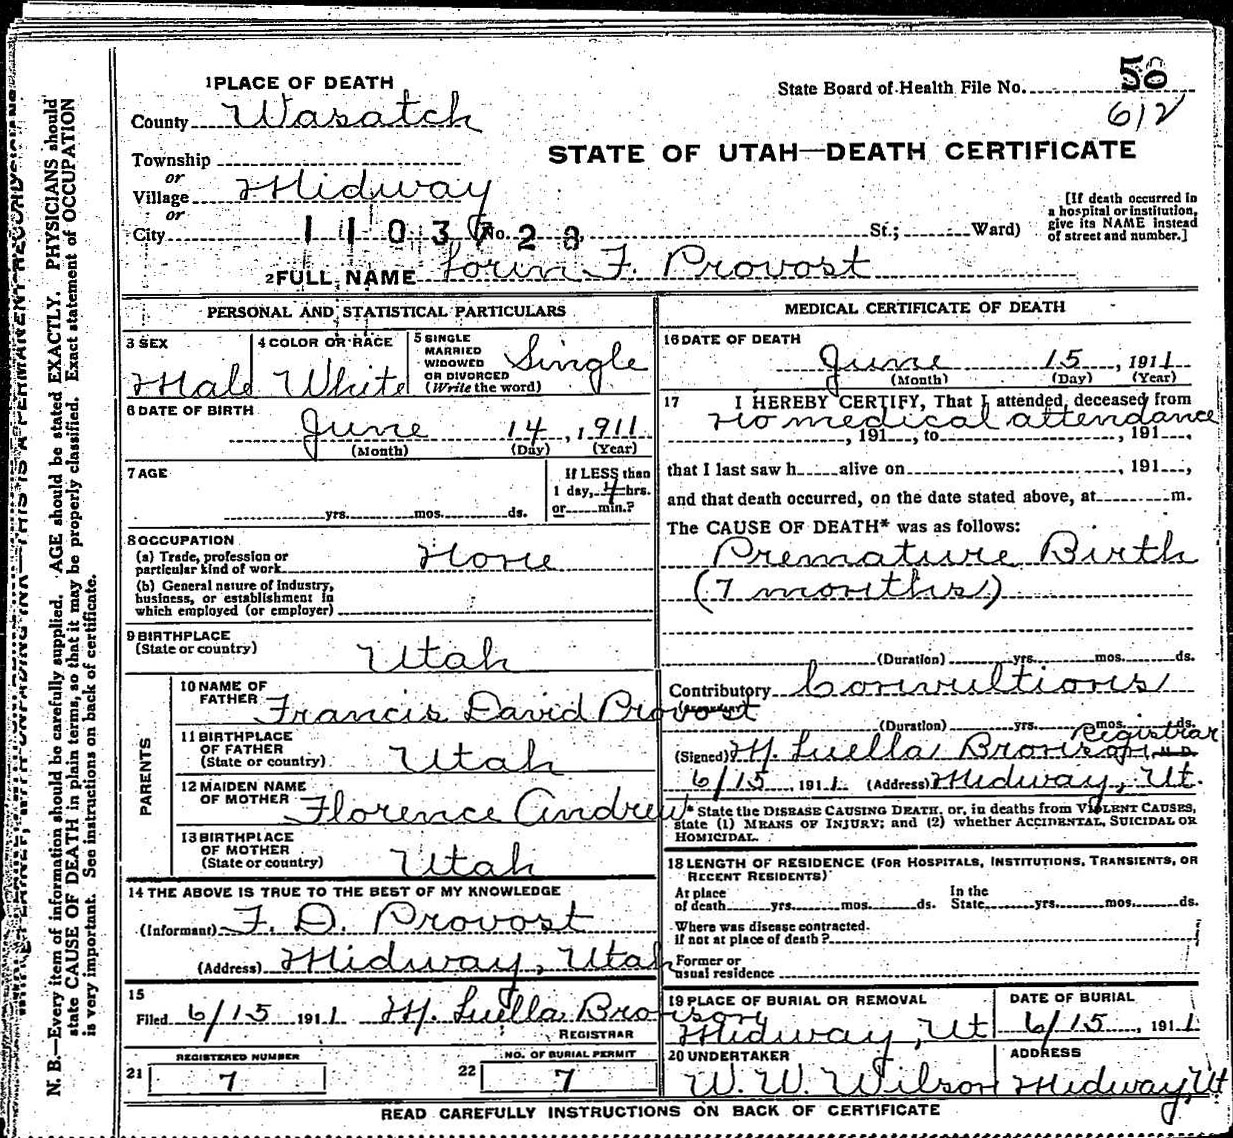 1 PLACE OF DEATH
State Board of Health File No. 56
612
County Wasatch
STATE OF UTAH—DEATH CERTIFICATE
Township
or
Village Midway
or
City No. St.; Ward)
[If death occurred in
a hospital or institution,
give its NAME instead
of street and number.]
2 FULL NAME Lorin F. Provost
PERSONAL AND STATISTICAL PARTICULARS
3 SEX
Male
4 COLOR OR RACE
White
5 SINGLE
MARRIED
WIDOWED
OR DIVORCED
(Write the word)
Single
6 DATE OF BIRTH
June 14, 1911
(Month) (Day) (Year)
7 AGE
yrs. mos. ds.
If LESS than
1 day, 4 hrs.
or min.?
8 OCCUPATION
(a) Trade, profession or
particular kind of work None
(b) General nature of Industry,
business, or establishment in
which employed (or employer)
9 BIRTHPLACE
(State or country)
Utah
PARENTS
10 NAME OF
FATHER Francis David Provost
11 BIRTHPLACE
OF FATHER
(State or country) Utah
12 MAIDEN NAME
OF MOTHER Florence Andrew
13 BIRTHPLACE
OF MOTHER
(State or country) Utah
14 THE ABOVE IS TRUE TO THE BEST OF MY KNOWLEDGE
(Informant) F. D. Provost
(Address) Midway, Utah
15
Filed 6/15 1911 M. Luella Bronson
REGISTRAR
REGISTERED NUMBER
21 7
NO. OF BURIAL PERMIT
22 7
MEDICAL CERTIFICATE OF DEATH
16 DATE OF DEATH
June 15, 1911
(Month) (Day) (Year)
17 I HEREBY CERTIFY, That I attended deceased from
No medical attendance
, 191 , to , 191 ,
that I last saw h alive on , 191 ,
and that death occurred, on the date stated above, at m.
The CAUSE OF DEATH* was as follows:
Premature Birth
(7 months)
(Duration) yrs. mos. ds.
Contributory Convultions
(Duration) yrs. mos. ds.
Registrar
(Signed) M. Luella Bronson, M.D.
6/15, 1911 (Address) Midway, Ut.
* State the DISEASE CAUSING DEATH, or, in deaths from VIOLENT CAUSES,
state (1) MEANS OF INJURY; and (2) whether ACCIDENTAL, SUICIDAL OR
HOMICIDAL.
18 LENGTH OF RESIDENCE (FOR HOSPITALS, INSTITUTIONS, TRANSIENTS, OR
RECENT RESIDENTS)
At place
of death yrs. mos. ds.
In the
State yrs. mos. ds.
Where was disease contracted.
if not at place of death?
Former or
usual residence
19 PLACE OF BURIAL OR REMOVAL
Midway, Ut
DATE OF BURIAL
6/15, 1911
20 UNDERTAKER
W. W. Wilson
ADDRESS
Midway, Ut
READ CAREFULLY INSTRUCTIONS ON BACK OF CERTIFICATE
N. B.—Every item of information should be carefully supplied. AGE should be stated EXACTLY. PHYSICIANS should
state CAUSE OF DEATH in plain terms, so that it may be properly classified. Exact statement of OCCUPATION
is very important. See instructions on back of certificate.